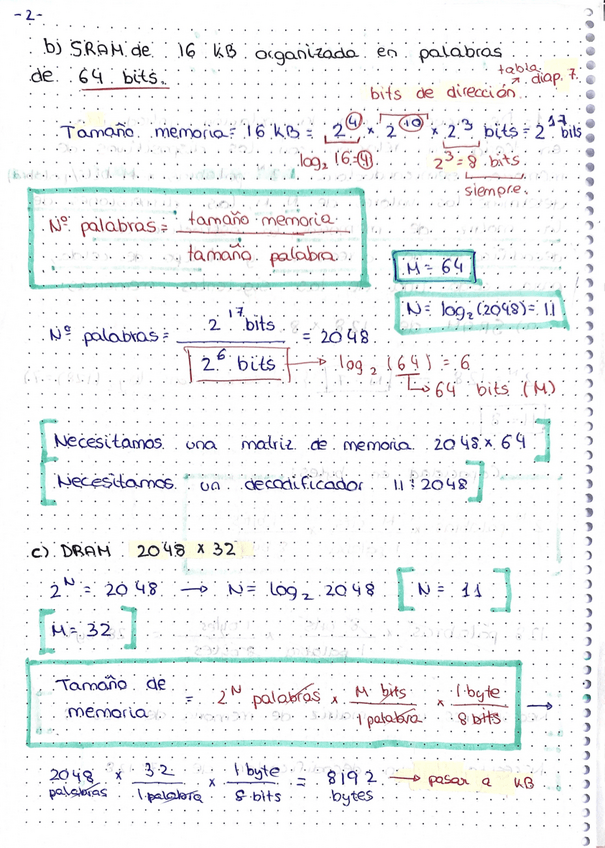 -2-
b) SRAM de 16 KB organizada en palabras
de 64 bits.
tabla
bits de dirección ↗ diap. 7.
Tamaño memoria = 16 KB = 2^4 × 2^10 × 2^3 bits = 2^17 bits
log₂ 16 = 4
2^3 = 8 bits.
siempre.
Nº palabras = tamaño memoria
tamaño palabra
M = 64
N = log₂ (2048) = 11
Nº palabras = 2^17 bits = 2048
2^6 bits → log₂ (64) = 6
↳ 64 bits (M)
[Necesitamos una matriz de memoria 2048 × 64]
[Necesitamos un decodificador 11:2048]
c) DRAM 2048 × 32
2^N = 2048 → N = log₂ 2048 [N = 11]
[M = 32]
Tamaño de
memoria = 2^N palabras × M bits / 1 palabra × 1 byte / 8 bits →
2048 palabras × 32 / 1 palabra × 1 byte / 8 bits = 8192 bytes → pasar a KB